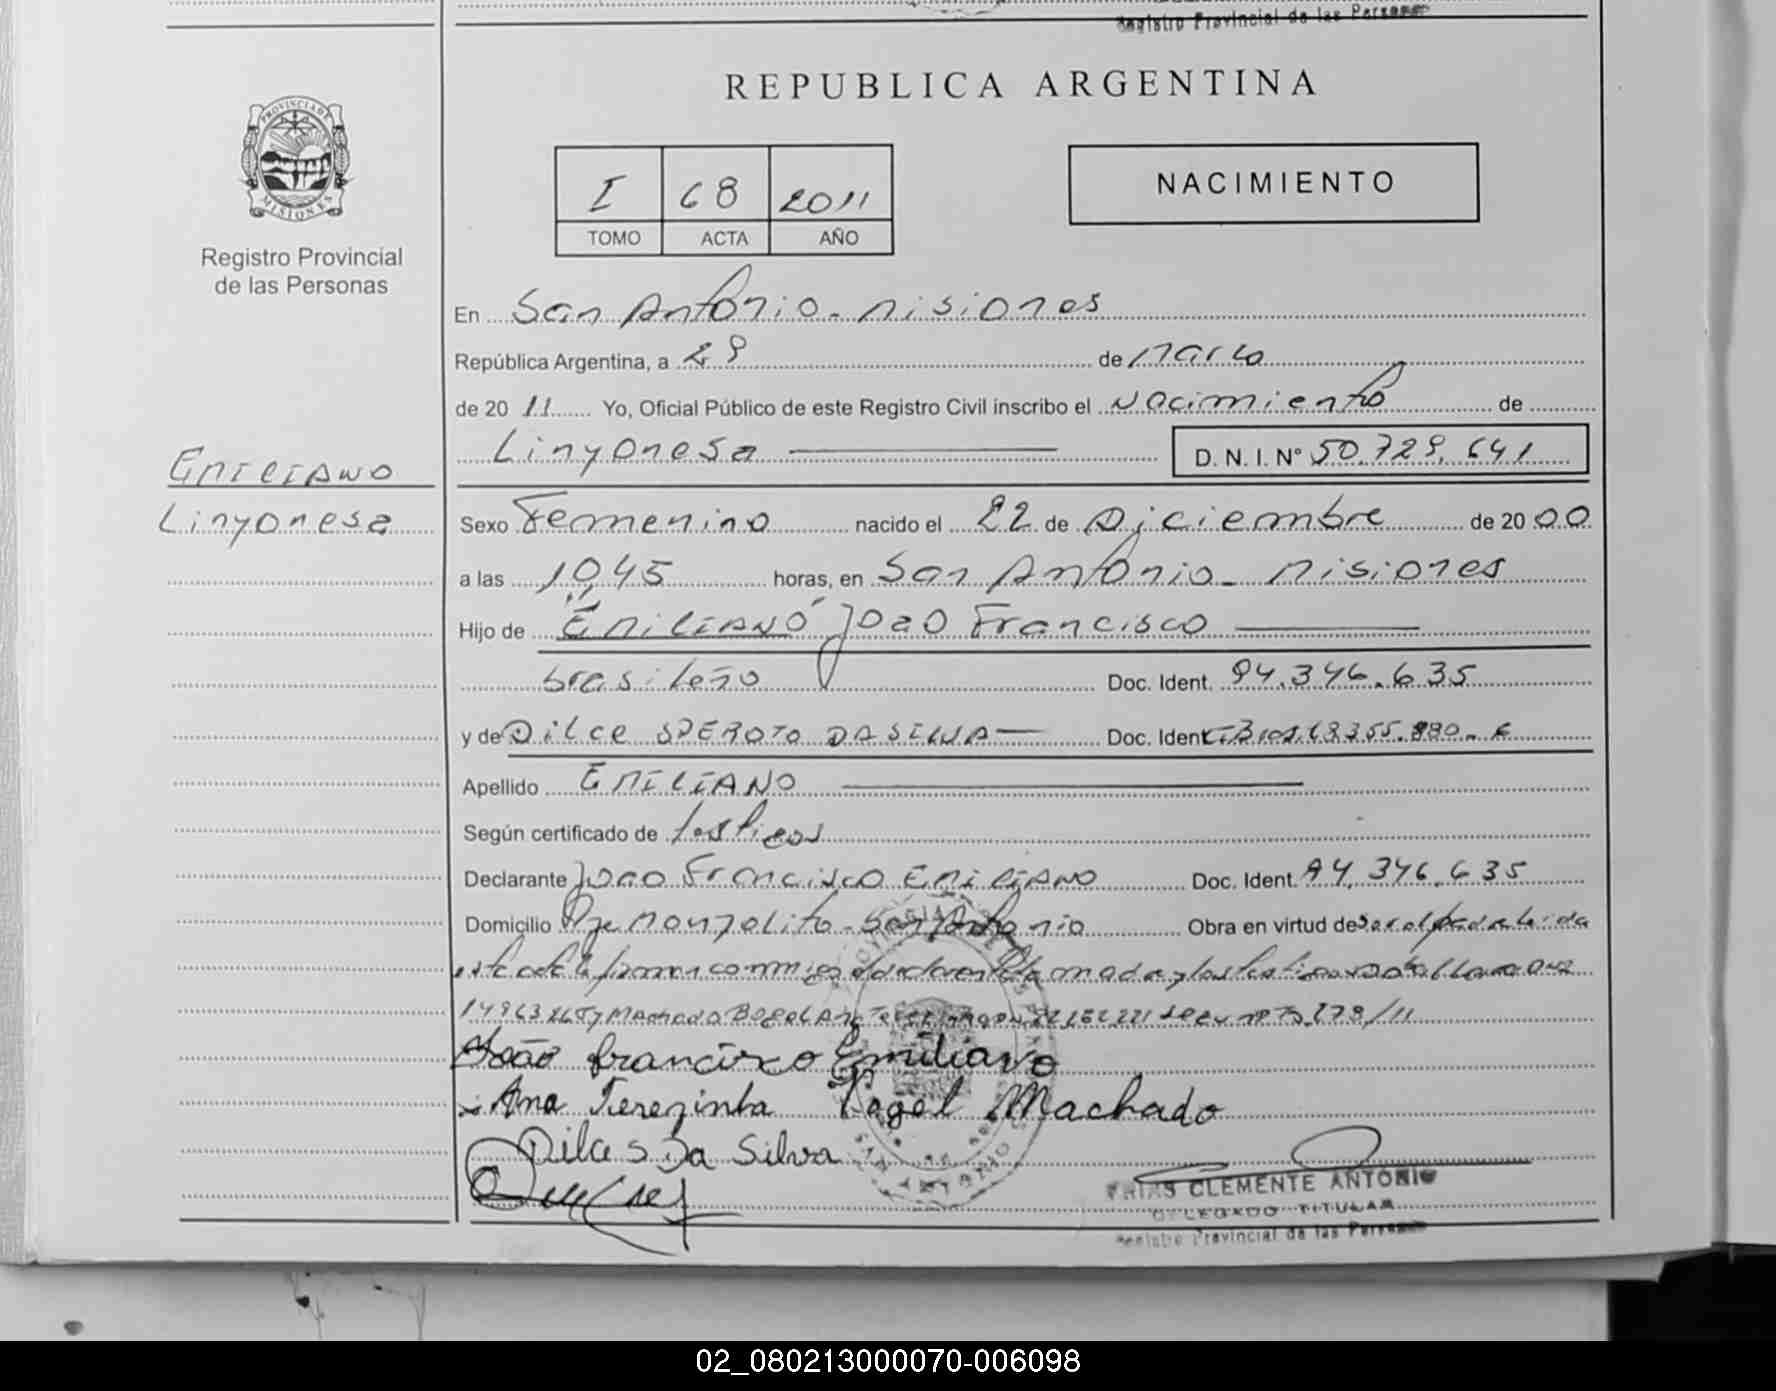 Registro Provincial de las Personas
REPUBLICA ARGENTINA
PROVINCIA DE
MISIONES
Registro Provincial
de las Personas
I 68 2011
TOMO ACTA AÑO
NACIMIENTO
En San Antonio - Misiones
República Argentina, a 29 de Marzo
de 20 11 Yo, Oficial Público de este Registro Civil inscribo el Nacimiento de
Linyonesa D. N. I. N° 50.729.641
EMILIANO
Linyonesa
Sexo Femenino nacido el 22 de Diciembre de 20 00
a las 10,45 horas, en San Antonio - Misiones
Hijo de "EMILIANO" Joao Francisco
brasileño Doc. Ident. 94.346.635
y de Dilce SPEROTO DA SILVA Doc. Ident.
Apellido EMILIANO
Según certificado de testigos
Declarante Joao Francisco EMILIANO Doc. Ident. 94.346.635
Domicilio Pje Monzolito - San Antonio Obra en virtud de ser el padre leida
este acta la firman conmigo el declarante la madre y los testigos
y Machado 278/11
João francisco Emiliano
Ana Terezinha Pagel Machado
Dilce S Da Silva
FRIAS CLEMENTE ANTONIO
DELEGADO TITULAR
Registro Provincial de las Personas
02_080213000070-006098